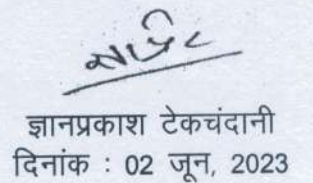 ज्ञानप्रकाश टेकचंदानी
दिनांक : 02 जून, 2023